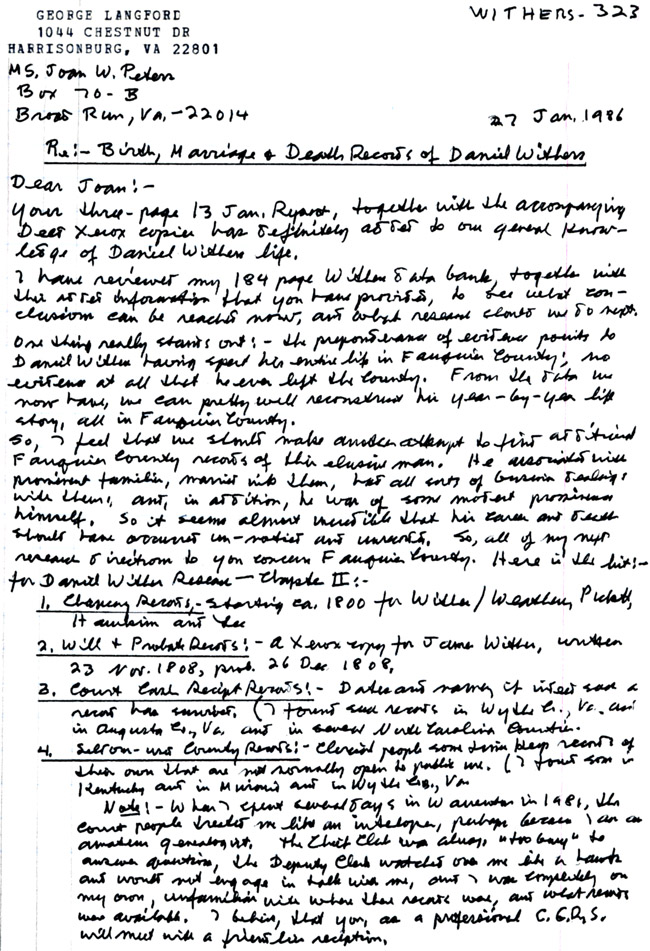 GEORGE LANGFORD
1044 CHESTNUT DR
HARRISONBURG, VA 22801
WITHERS-323
Ms. Joan W. Peters
Box 70-B
Broad Run, Va.-22014
27 Jan. 1986
Re:- Birth, Marriage & Death Records of Daniel Withers
Dear Joan:-
Your three-page 13 Jan. Report, together with the accompanying
Deed Xerox copies has definitely added to our general know-
ledge of Daniel Withers life.
I have reviewed my 184 page Withers data bank, together with
this added information that you have provided, to see what con-
clusions can be reached now, and what research should we do next.
One thing really stands out:- the preponderance of evidence points to
Daniel Withers having spent his entire life in Fauquier County; no
evidence at all that he ever left the County. From the data we
now have, we can pretty well reconstruct his year-by-year life
story, all in Fauquier County.
So, I feel that we should make another attempt to find additional
Fauquier County records of this elusive man. He associated with
prominent families, married into them, had all sorts of business dealings
with them; and, in addition, he was of some modest prominence
himself. So it seems almost incredible that his career and death
should have occurred un-noticed and unrecorded. So, all of my next
research directions to you concern Fauquier County. Here is the list:-
for Daniel Withers Research - Chapter II:-
1. Chancery Records,- starting ca. 1800 for Withers/Weathers, Pickett,
and Lee
2. Will & Probate Records:- A Xerox copy for James Withers, written
23 Nov. 1808, prob. 26 Dec 1808,
3. Court Case Receipt Records:- Dates and names, if indeed such a
record has survived. (I found such records in Wythe Co., Va. and
in Augusta Co., Va. and in several North Carolina Counties.
4. County Records:- Clerical people some times keep records of
their own that are not normally open to public use. (I found some in
Kentucky and in Missouri and in Wythe Co., Va.
Note:- When I spent several days in Warrenton in 1981, the
court people treated me like an interloper, perhaps because I am an
amateur genealogist. The Chief Clerk was always "too busy" to
answer questions, the Deputy Clerk watched over me like a hawk
and would not engage in talk with me, and I was completely on
my own, unfamiliar with where these records were, and what records
was available. I believe, that you, as a professional C.G.R.S.
will meet with a friendlier reception.